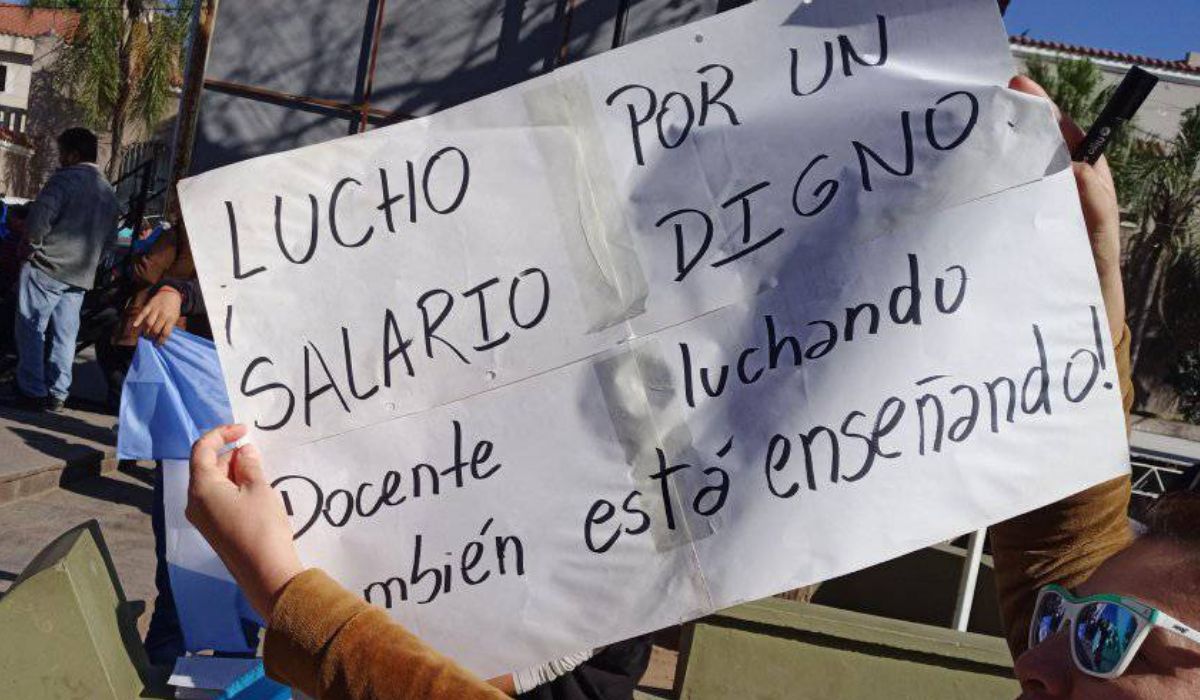 LUCHO POR UN
SALARIO DIGNO
Docente luchando
mbién está enseñando!